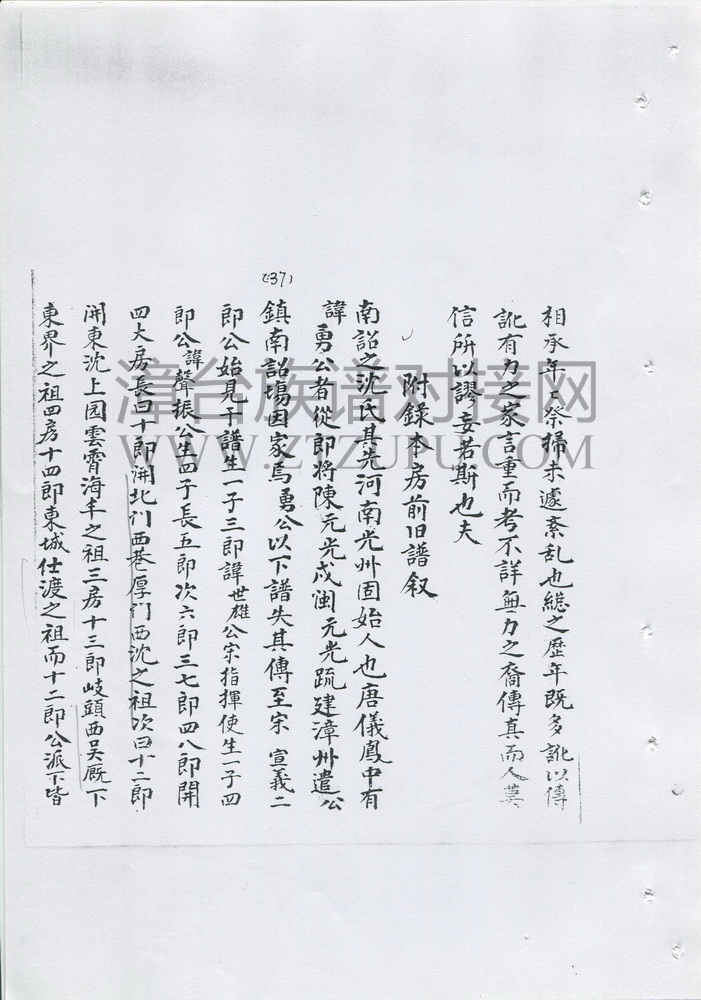 相承年〻祭掃未遽紊乱也總之歴年既多訛以傳
訛有力之家言重而考不詳無力之裔傳真而人莫
信所以謬妄若斯也夫
附錄本房前旧譜叙
南詔之沈氏其先河南光州固始人也唐儀鳳中有
諱勇公者從郎將陳元光戍闽元光疏建漳州遣公
鎮南詔塲因家焉勇公以下譜失其傳至宋宣義二
郎公始見于譜生一子三郎諱世雄公宗指揮使生一子四
郎公諱聲振公生四子長五郎次六郎三七郎四八郎開
四大房長曰十郎開北门西巷厚门西沈之祖次曰十二郎
開東沈上园雲霄海丰之祖三房十三郎岐頭西吴厩下
東界之祖四房十四郎東城仕渡之祖而十二郎公派下皆
(37)
漳台族谱对接网
WWW.ZTZUPU.COM